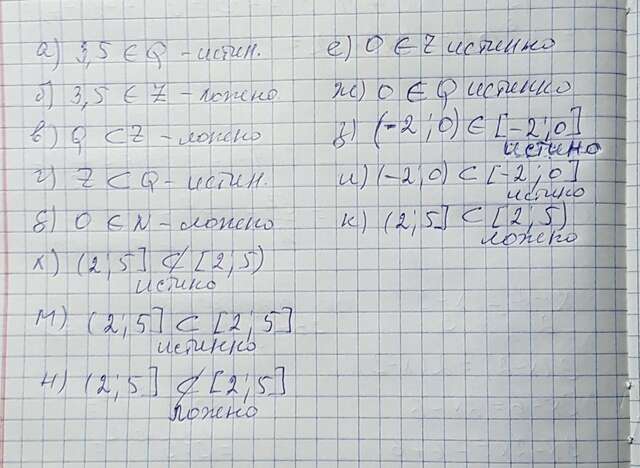 а) 3,5 ∈ Q - истин.
б) 3,5 ∈ Z - ложно
в) Q ⊂ Z - ложно
г) Z ⊂ Q - истин.
д) 0 ∈ N - ложно
л) (2; 5] ⊄ [2; 5)
истино
м) (2; 5] ⊂ [2; 5]
истинно
н) (2; 5] ⊄ [2; 5]
ложно
е) 0 ∈ Z истинно
ж) 0 ∈ Q истинно
з) (-2; 0) ∈ [-2; 0]
истино
и) (-2; 0) ⊂ [-2; 0]
истино
к) (2; 5] ⊂ [2; 5)
ложно